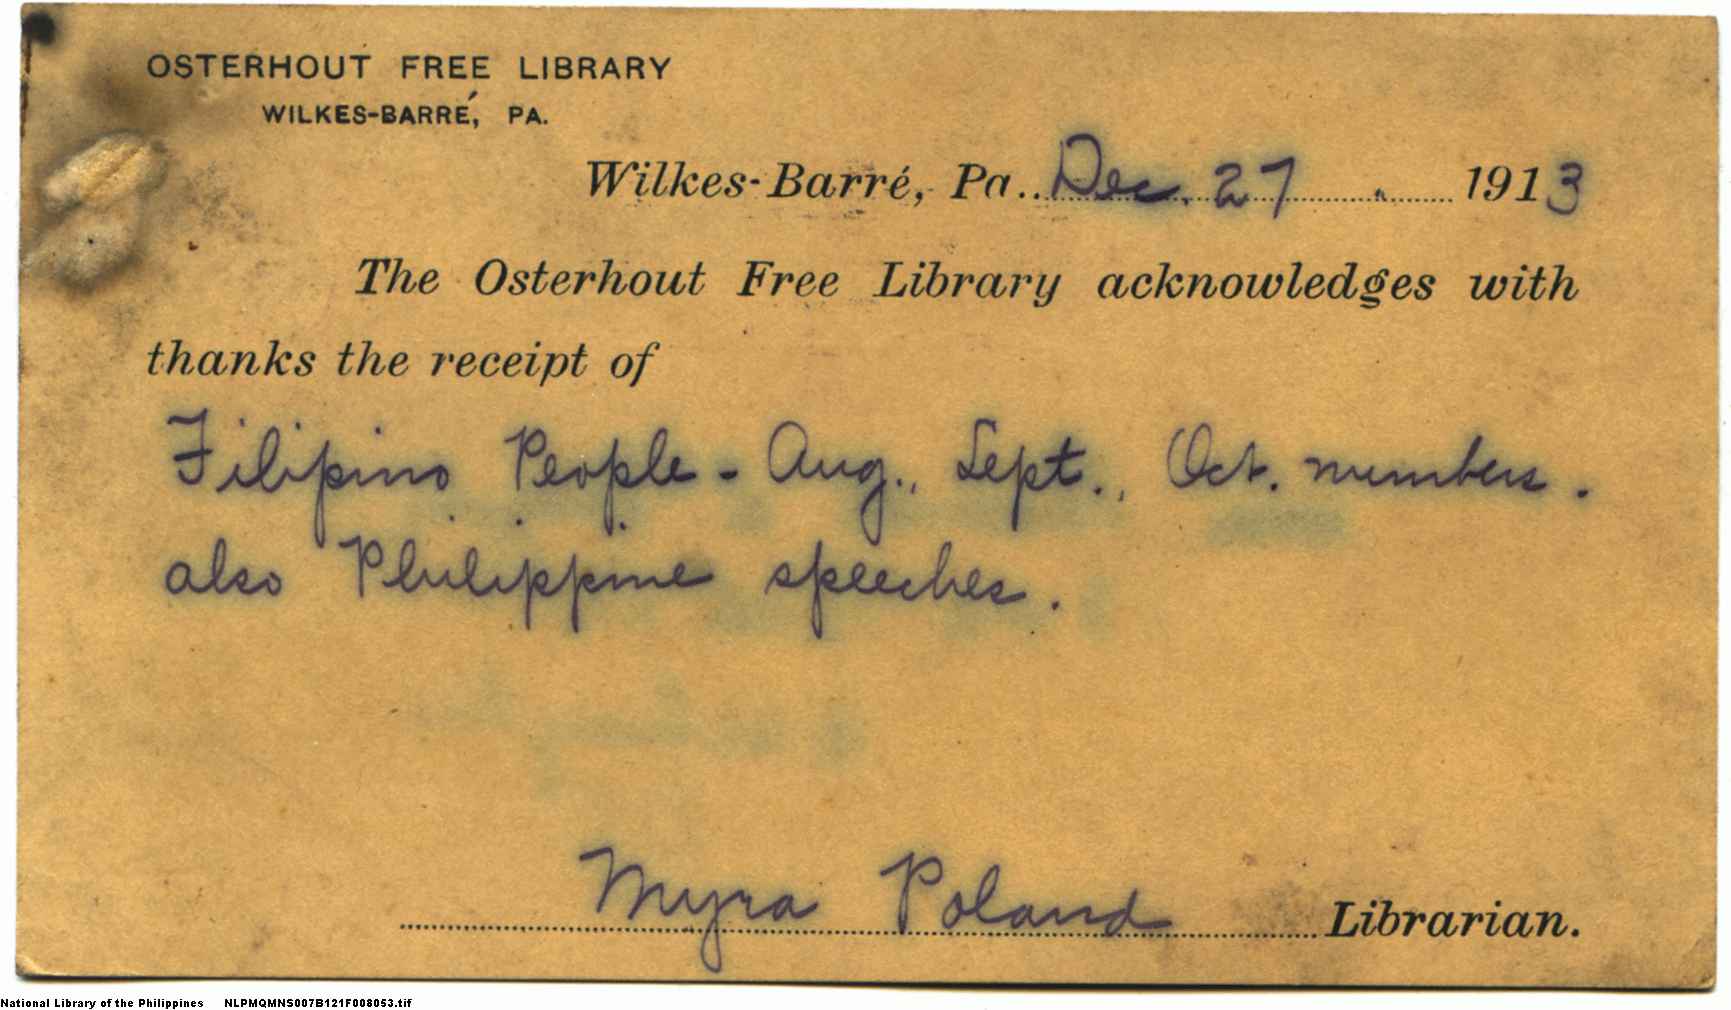 OSTERHOUT FREE LIBRARY
WILKES-BARRÉ, PA.
Wilkes-Barré, Pa. Dec. 27 1913
The Osterhout Free Library acknowledges with
thanks the receipt of
Filipino People - Aug., Sept., Oct. numbers.
also Philippine speeches.
Myra Poland Librarian.
National Library of the Philippines NLPMQMNS007B121F008053.tif